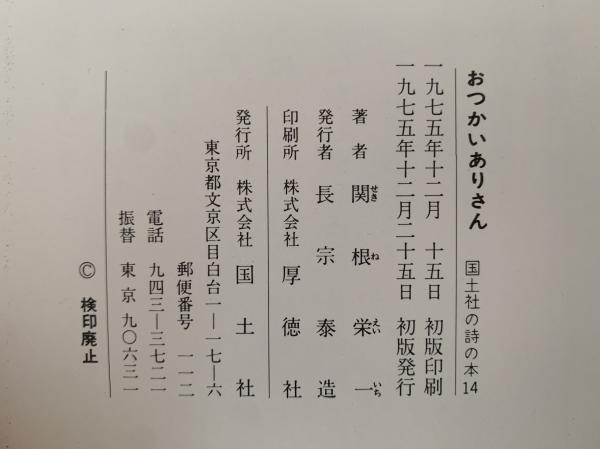 おつかいありさん 国土社の詩の本14
一九七五年十二月 十五日 初版印刷
一九七五年十二月二十五日 初版発行
著者 関根栄一
せき ね えい いち
発行者 長宗泰造
印刷所 株式会社 厚徳社
発行所 株式会社 国土社
東京都文京区目白台一―一七―六
郵便番号 一一二
電話 九四三―三七二一
振替 東京 九〇六三一
© 検印廃止